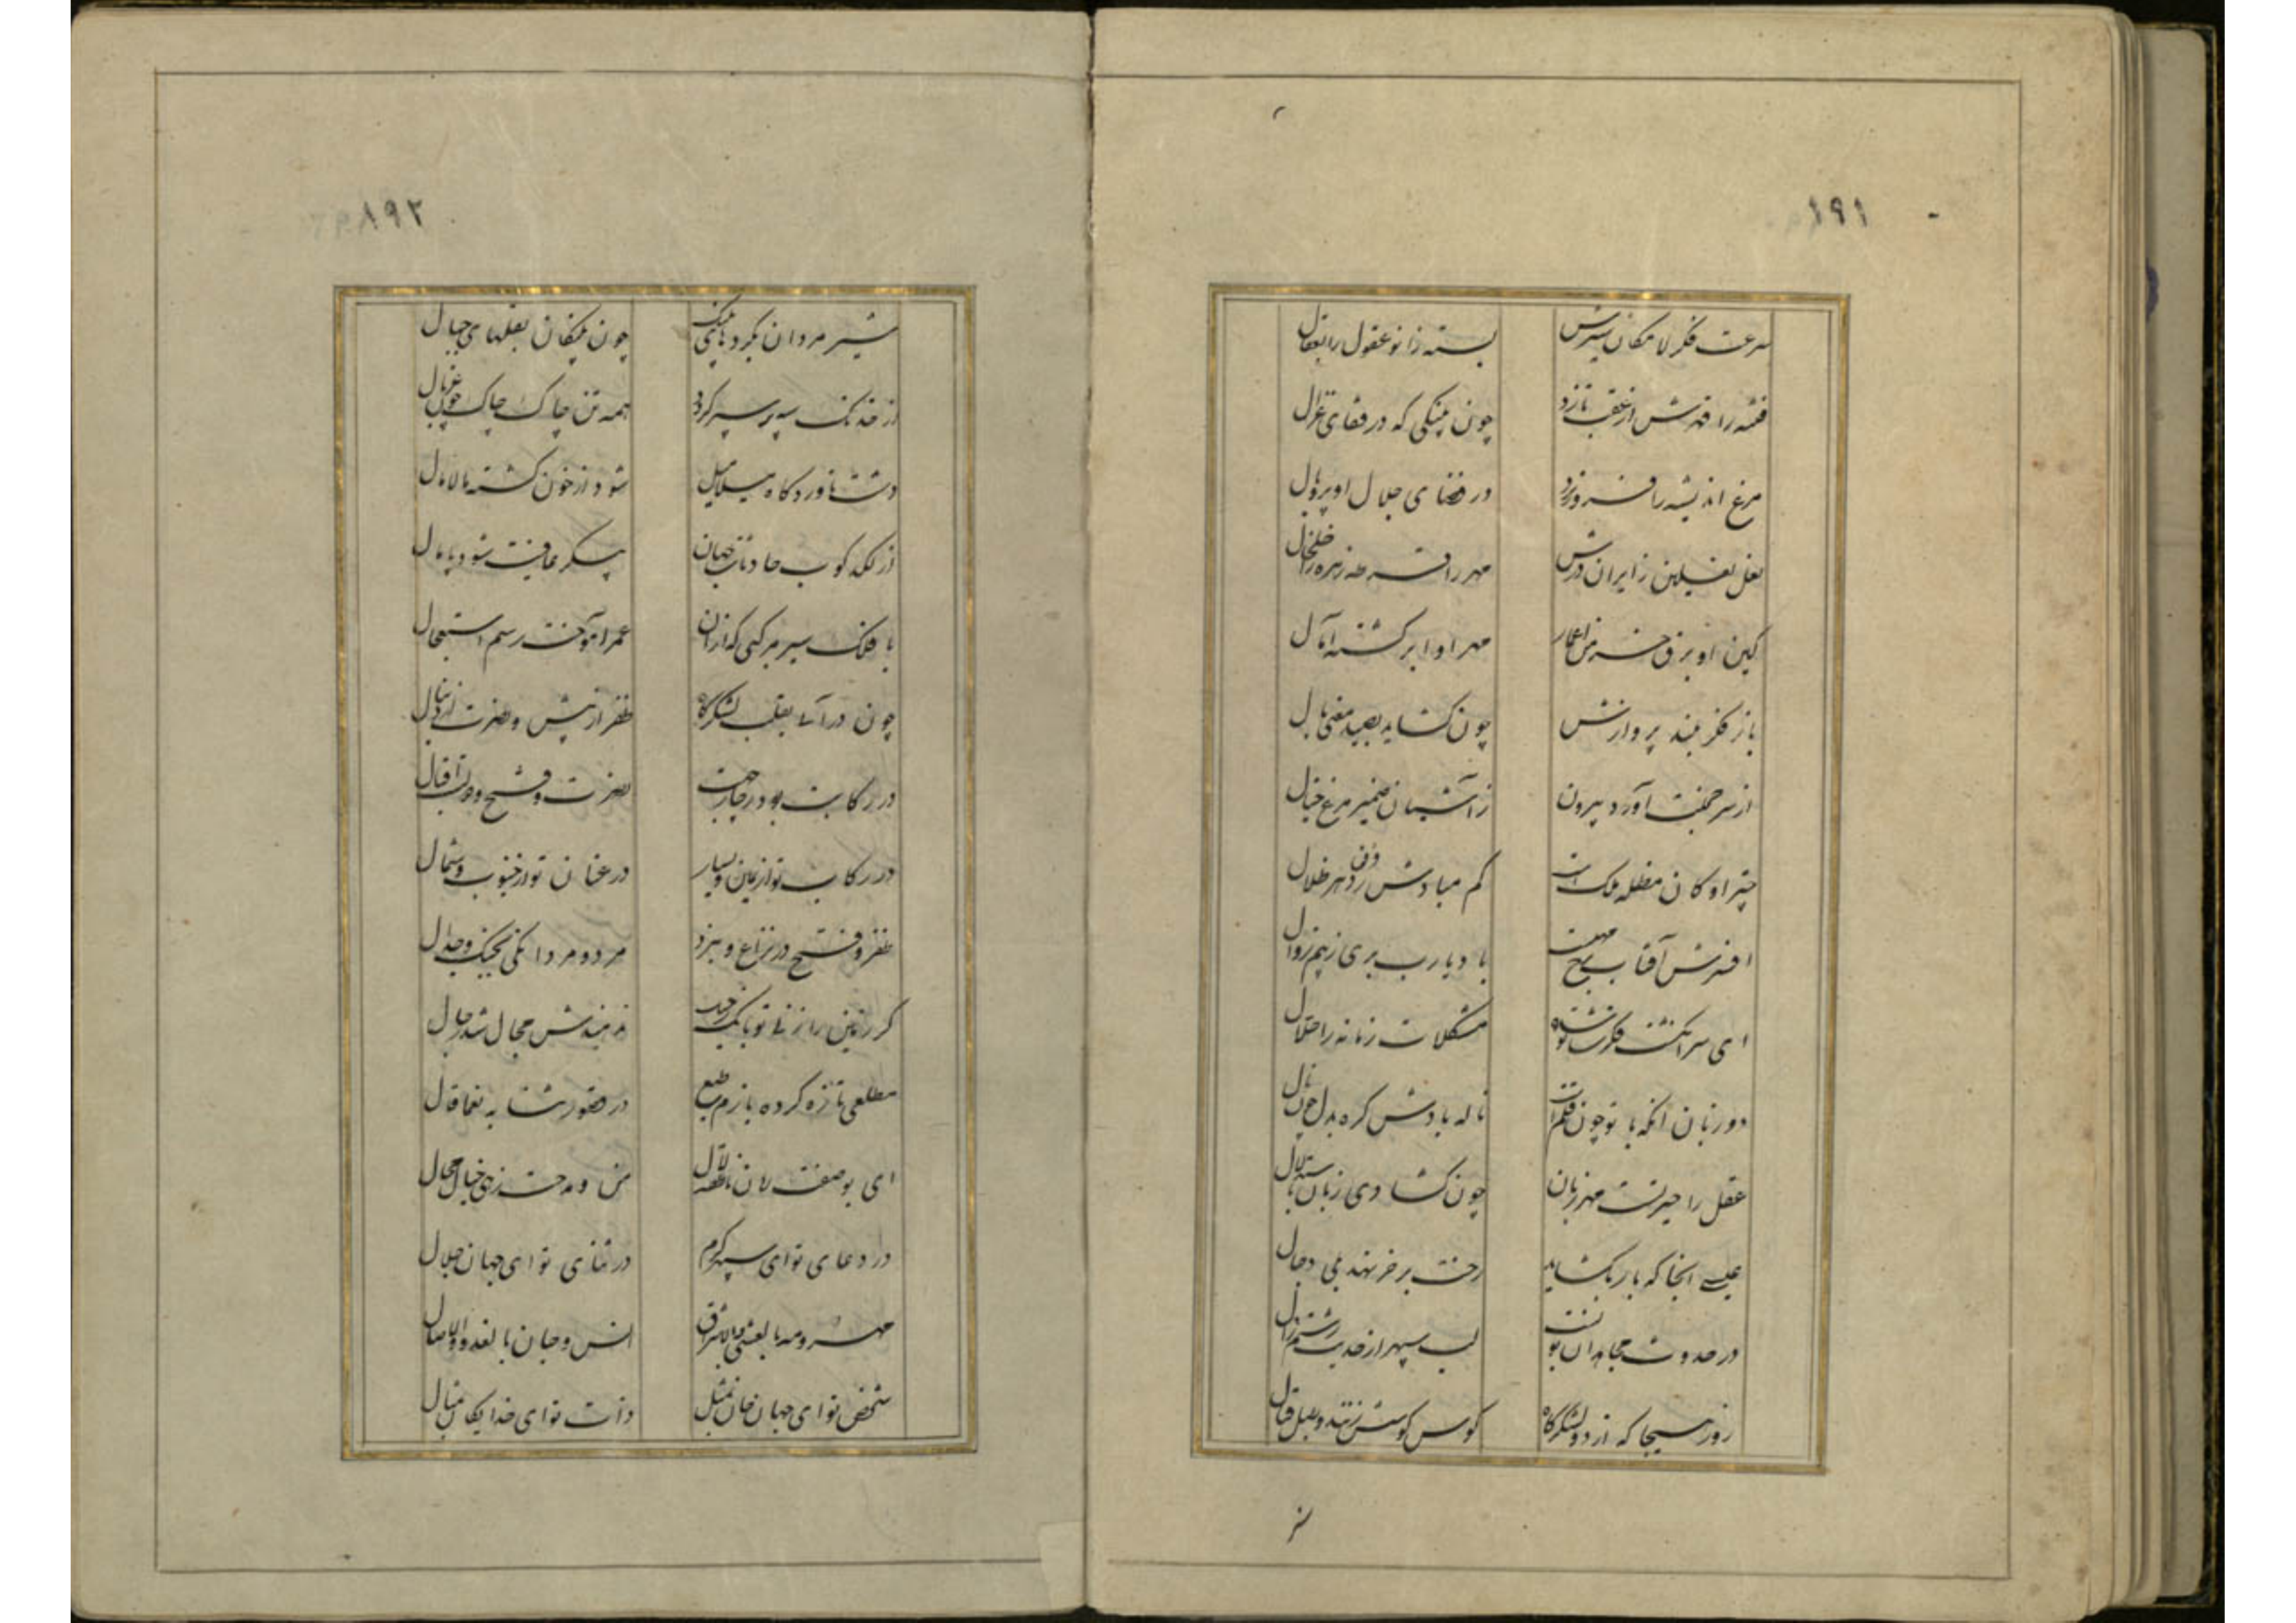 ۱۹۱
سرعت فکر لامکان سیرش بسته زانو عقول را بعقال
فتنه را قهرش از عقب تازد چون پلنگی که در قفای غزال
مرغ اندیشه را فرو ریزد در فضای جلال او پر و بال
نعل نعلین زایران درش مهر را زهره را خلخال
کین او برق خرمن اعمار مهر او ابر کشته آمال
باز فکر بلند پروازش چون کشاید بصید معنی بال
از سر جنت آورد بیرون ز آشیان ضمیر مرغ خیال
چتر او کان مظله ملک است کم مبادش ز فرق دهر ظلال
افسرش آفتاب باد یارب بری ز بیم زوال
ای سر انکشت فکرت مشکلات زمانه را حلال
دو زبان آنکه با تو چون قلم است ناله بادش کره بدل چون نال
عقل را حیرتست مهر زبان چون کشادی زبان باستدلال
عیسی انجا که بار بکشاید رخت بر خر نهد پی دجال
در لب سپهر از حدیث رستم زال
روز هیجا که از دو لشکرکاه کوس کوشش زنند و طبل قتال
۸۹۲
شیر مردان چون پلنکان بقلهای جبال
از خدنک سه پر سپر کردد همه تن چاک چاک چون غربال
دشت ناوردکاه میلامیل شود از خون کشته مالامال
از لکدکوب حادثات جهان پیکر عافیت شود پامال
با فلک سیر مرکبی که از آن عمر آموخت رسم استعجال
چون درآیی بقلب لشکرکاه ظفر از پیش و نصرت از دنبال
در رکابت بود ز چار جهت نصرت و فتح و دولت و اقبال
در رکاب تو از یمین و یسار در عنان تو از جنوب و شمال
ظفر و فتح در نزاع و نبرد مرد و مردانکی بجنک و جدال
کر زمین را نهیندش مجال
مطلعی تازه کرده بازم طبع در حضورت
ای بوصفت لسان ناطقه لال من و مدحت زهی خیال محال
در دعای تو ای سپهر کرم در ثنای تو ای جهان جلال
مهر و مه بالعشی والاشراق انس و جان بالغدو والاصال
شخص تو ای جهان جان ذات تو ای خدایکان